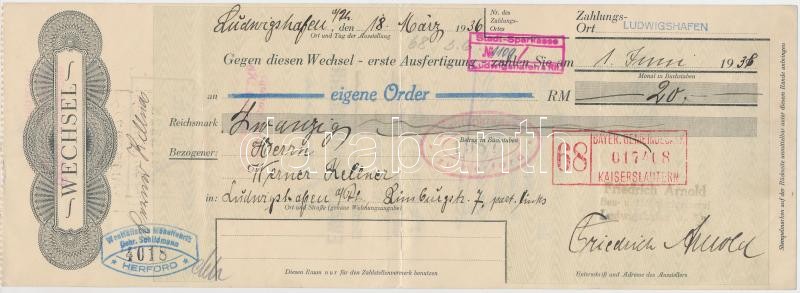 Ludwigshafen a/Rh., den 18. März 1936
Ort und Tag der Ausstellung
Nr. des
Zahlungs-
Ortes
Zahlungs-
Ort
LUDWIGSHAFEN
Stadt-Sparkasse
Ludwigshafen a. Rh.
Gegen diesen Wechsel - erste Ausfertigung - zahlen Sie am 1. Juni 1936
Monat in Buchstaben
an eigene Order RM 20.-
Reichsmark Zwanzig
Betrag in Buchstaben
Bezogener: Herrn
Werner Kellner
in: Ludwigshafen a/Rh., Limburgstr. 7, part. links
Ort und Straße (genaue Wohnungsangabe)
68
BAYER. GEMEINDEBANK
017418
KAISERSLAUTERN
Friedrich Arnold
Friedrich Arnold
Unterschrift und Adresse des Ausstellers
Diesen Raum nur für den Zahlstellenvermerk benutzen
WECHSEL
Werner Kellner
Westfälische Möbelfabrik
Gebr. Schildmann
4018
HERFORD
Stempelmarken auf der Rückseite unmittelbar unter diesem Rande anbringen
darabanth